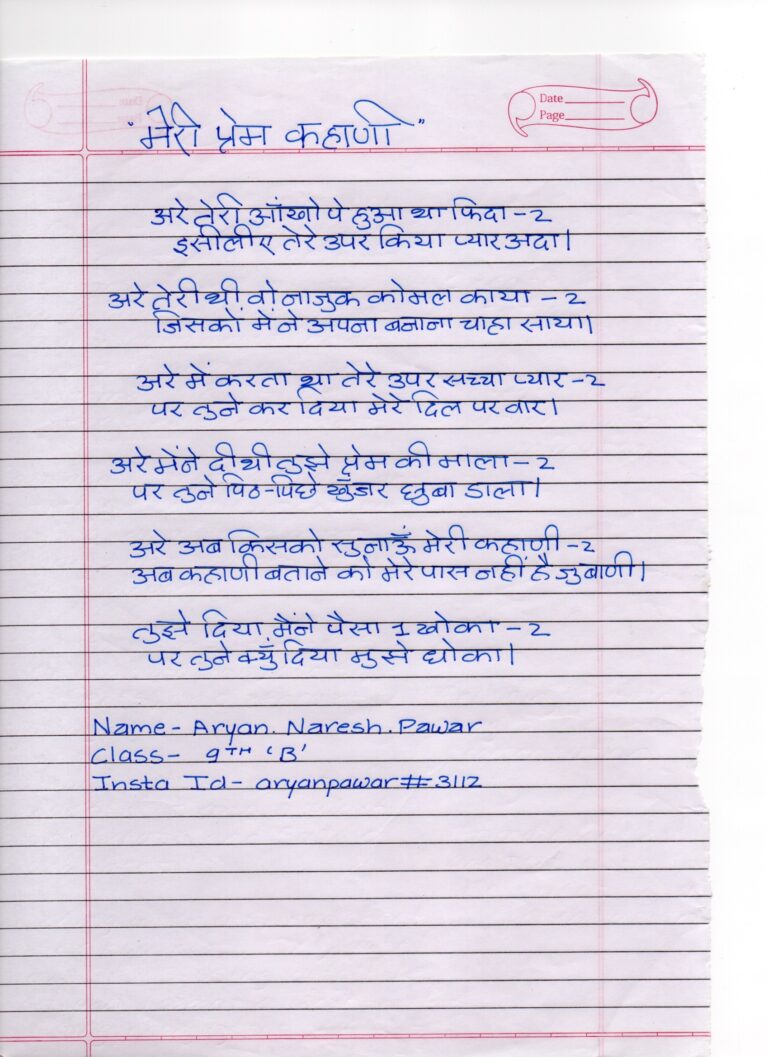 Date
Page
"मेरी प्रेम कहाणी"
अरे तेरी आँखो पे हुआ था फिदा -2
इसीलीए तेरे उपर किया प्यार अदा।
अरे तेरी थी वो नाजुक कोमल काया -2
जिसकों मेंने अपना बनाना चाहा साया।
अरे में करता था तेरे उपर सच्चा प्यार -2
पर तुने कर दिया मेरे दिल पर वार।
अरे मेंने दी थी तुझे प्रेम की माला -2
पर तुने पिठ-पिछे खुँजर घुबा डाला।
अरे अब किसको सुनाऊँ मेरी कहाणी -2
अब कहाणी बताने को मेरे पास नहीं है जुबाणी।
तुझे दिया मैंने पैसा 1 खोका -2
पर तुने क्युँ दिया मुझे धोका।
Name- Aryan. Naresh. Pawar
Class- 9TH 'B'
Insta Id- aryanpawar#3112